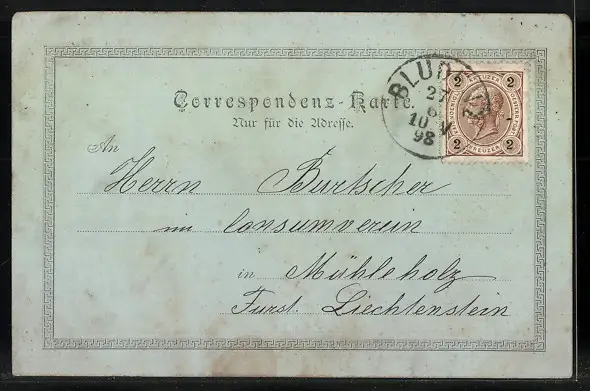 Correspondenz-Karte.
Nur für die Adresse.
BLUD
27
6
10 V
98
2 KREUZER 2
2 KREUZER 2
An
Herrn Burtscher
im Consumverein
in Mühleholz
Fürst. Liechtenstein